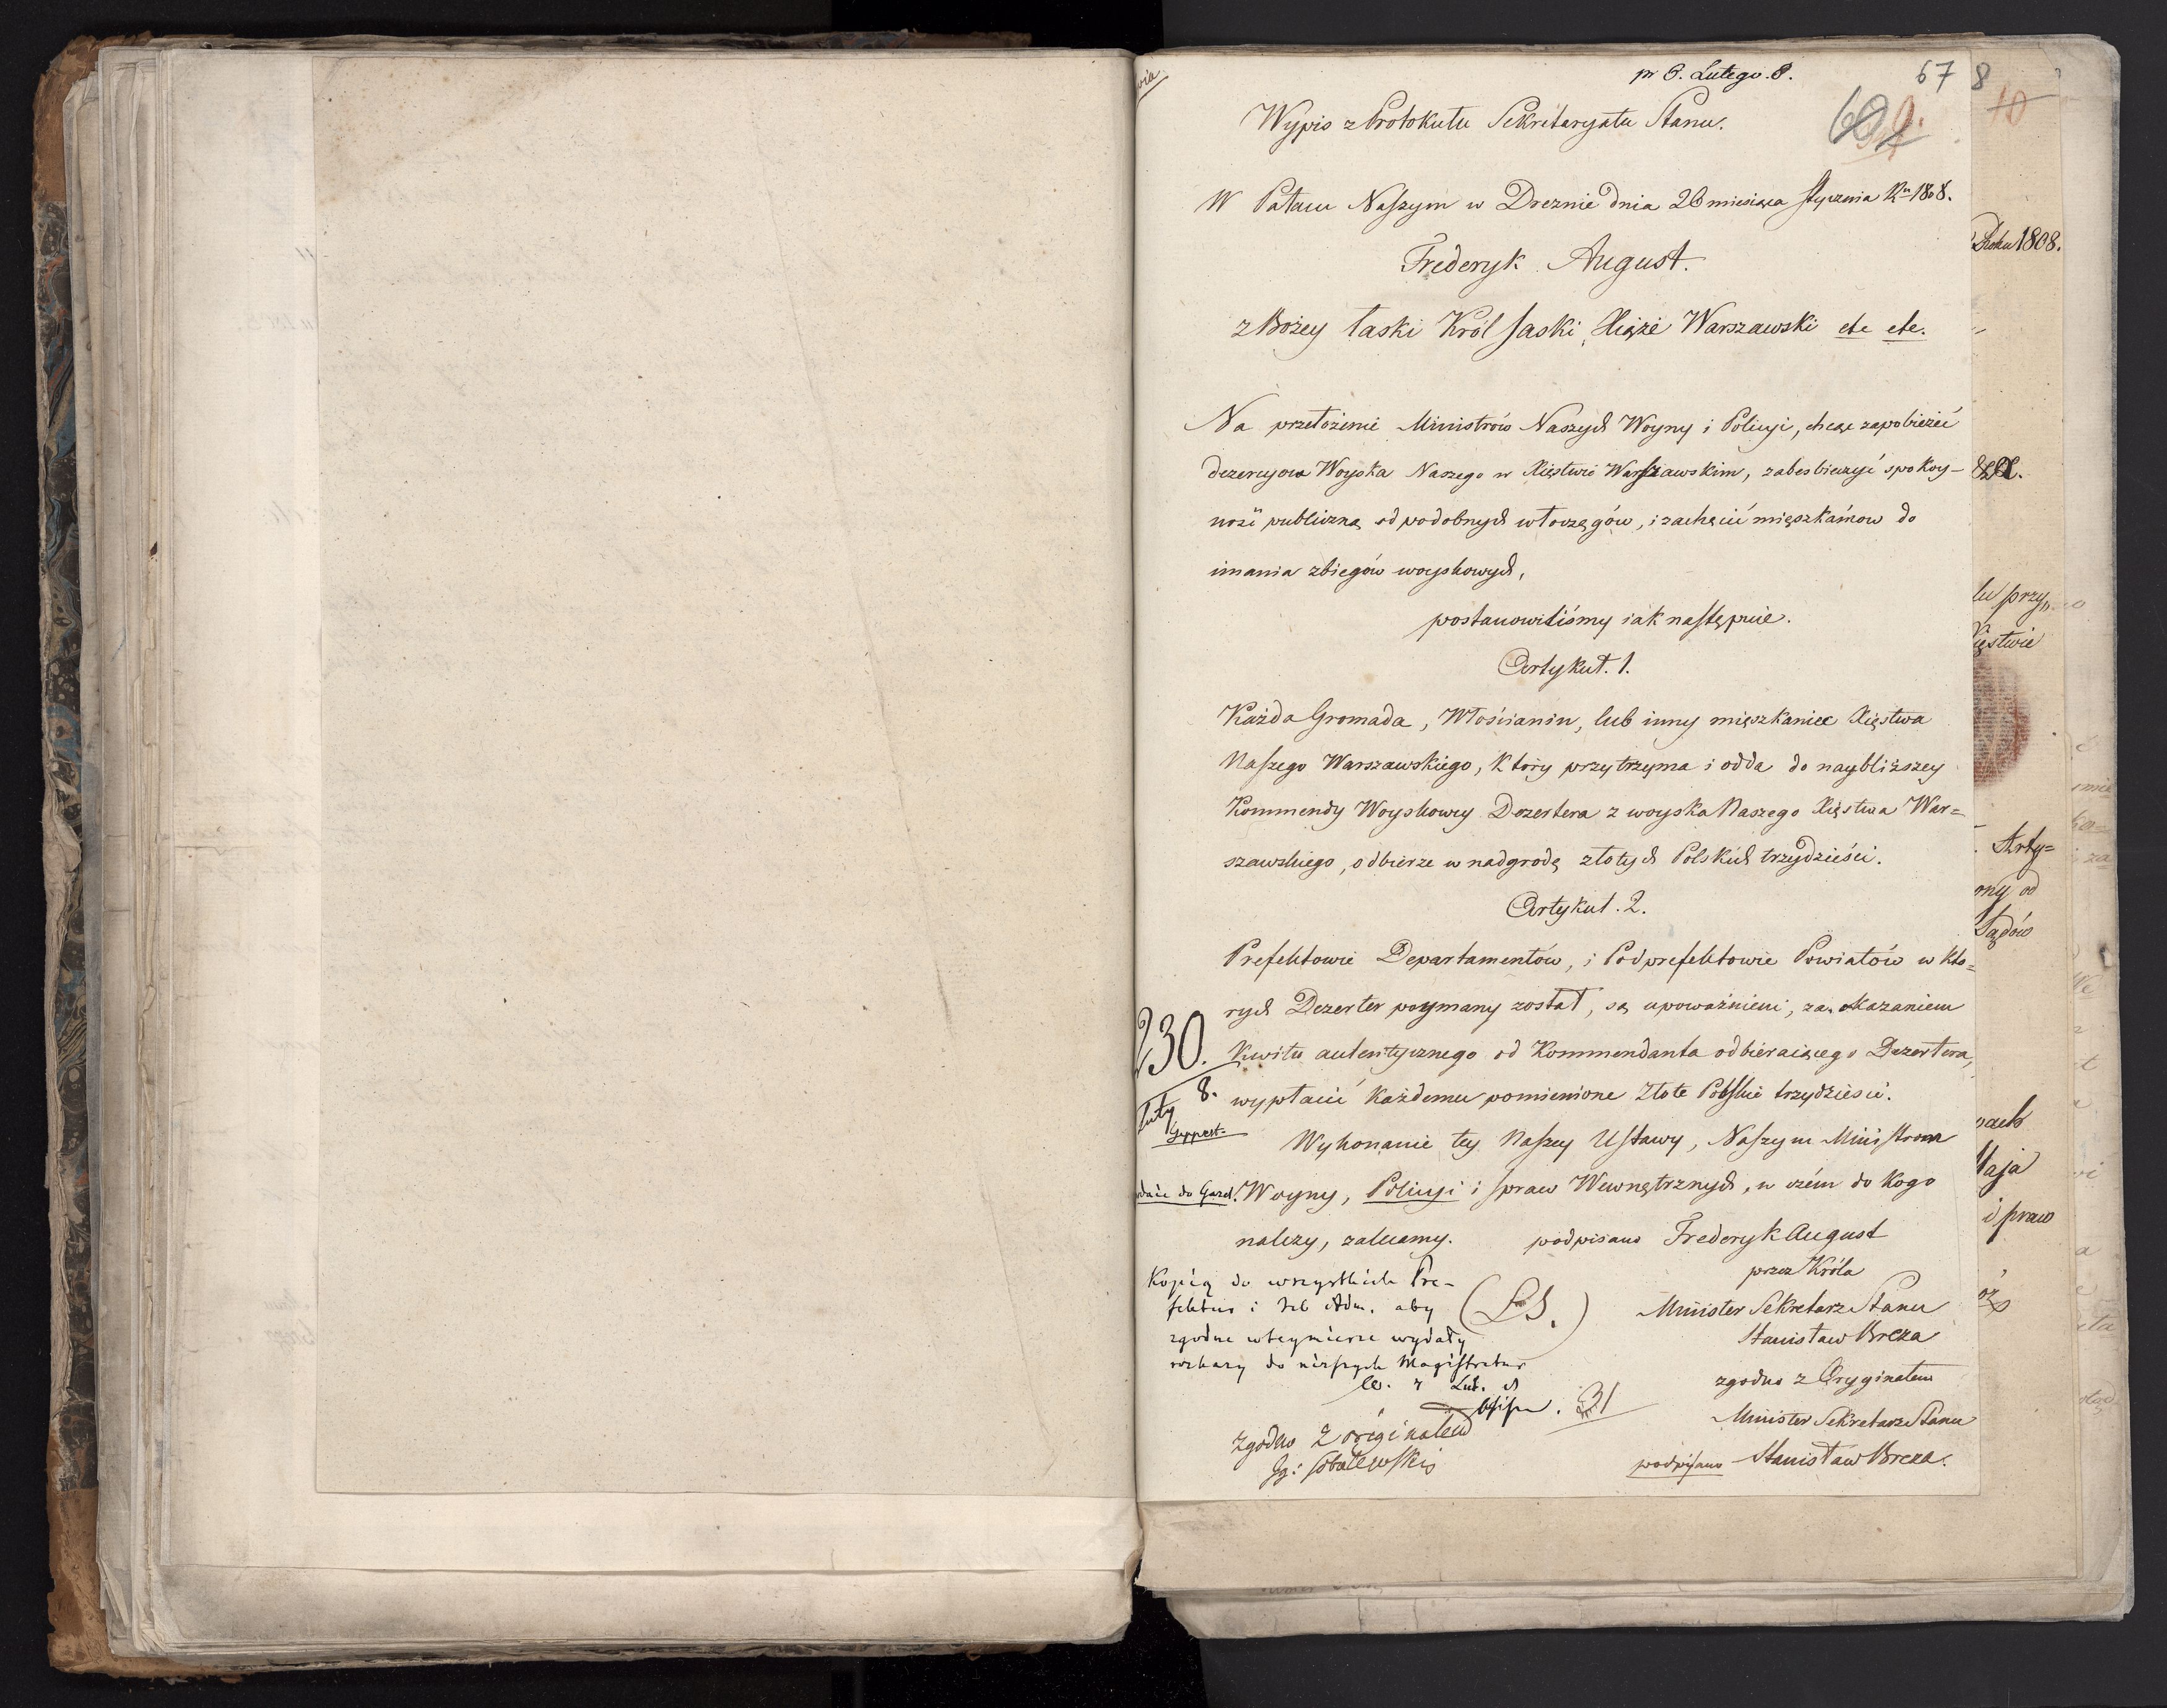 pr 6. Lutego. 8.
67
8
Wypis z Protokułu Sekretaryatu Stanu.
10
W Pałacu Naszym w Dreznie dnia 26 miesiąca stycznia Ru 1808.
Roku 1808.
Frederyk August.
z Bożey łaski Król Saski, Xiąże Warszawski etc etc.
Na przełożenie Ministrów Naszych Woyny i Policyi, chcąc zapobieżeć
dezercyom Woyska Naszego w Xięstwie Warszawskim, zabesbieczyć spokoy-
ność publiczną od podobnych włoczęgów, i zachęcić mięszkańcow do
imania zbiegów woyskowych,
postanowiliśmy iak następuie.
Artykuł. 1.
Każda Gromada, Włościanin, lub inny mięszkaniec Xięstwa
Naszego Warszawskiego, który przytrzyma i odda do naybliższey
Kommendy Woyskowey Dezertera z woyska Naszego Xięstwa War=
szawskiego, odbierze w nadgrodę złotych Polskich trzydzieści.
Artykuł. 2.
Prefektowie Departamentów, i Podprefektowie Powiatów w kto=
rych Dezerter poymany został, są upoważnieni, za okazaniem
230.
Kwitu autentycznego od Kommendanta odbieraiącego Dezertera,
8.
luty
wypłacić każdemu pomienione Złote Polskie trzydzieści.
Geppert
Wykonanie tey Naszey Ustawy, Naszym Ministrom
Woyny, Policyi i spraw Wewnętrznych, w czém do kogo
należy, zalecamy. podpisano Frederyk August
przez Króla
Kopią do wszystkich Pre-
fektur i Izb Adm. aby
zgodne w tey mierze wydały
rozkazy do niższych Magistratur
(L.S.)
Minister Sekretarz Stanu
Stanisław Breza
zgodno z Oryginałem
31
Minister Sekretarz Stanu
podpisano Stanisław Breza.
Zgodno z originałem
Sobolewski
lu przy
ięstwie
Arty=
ony od
Sądów
Maja
i praw